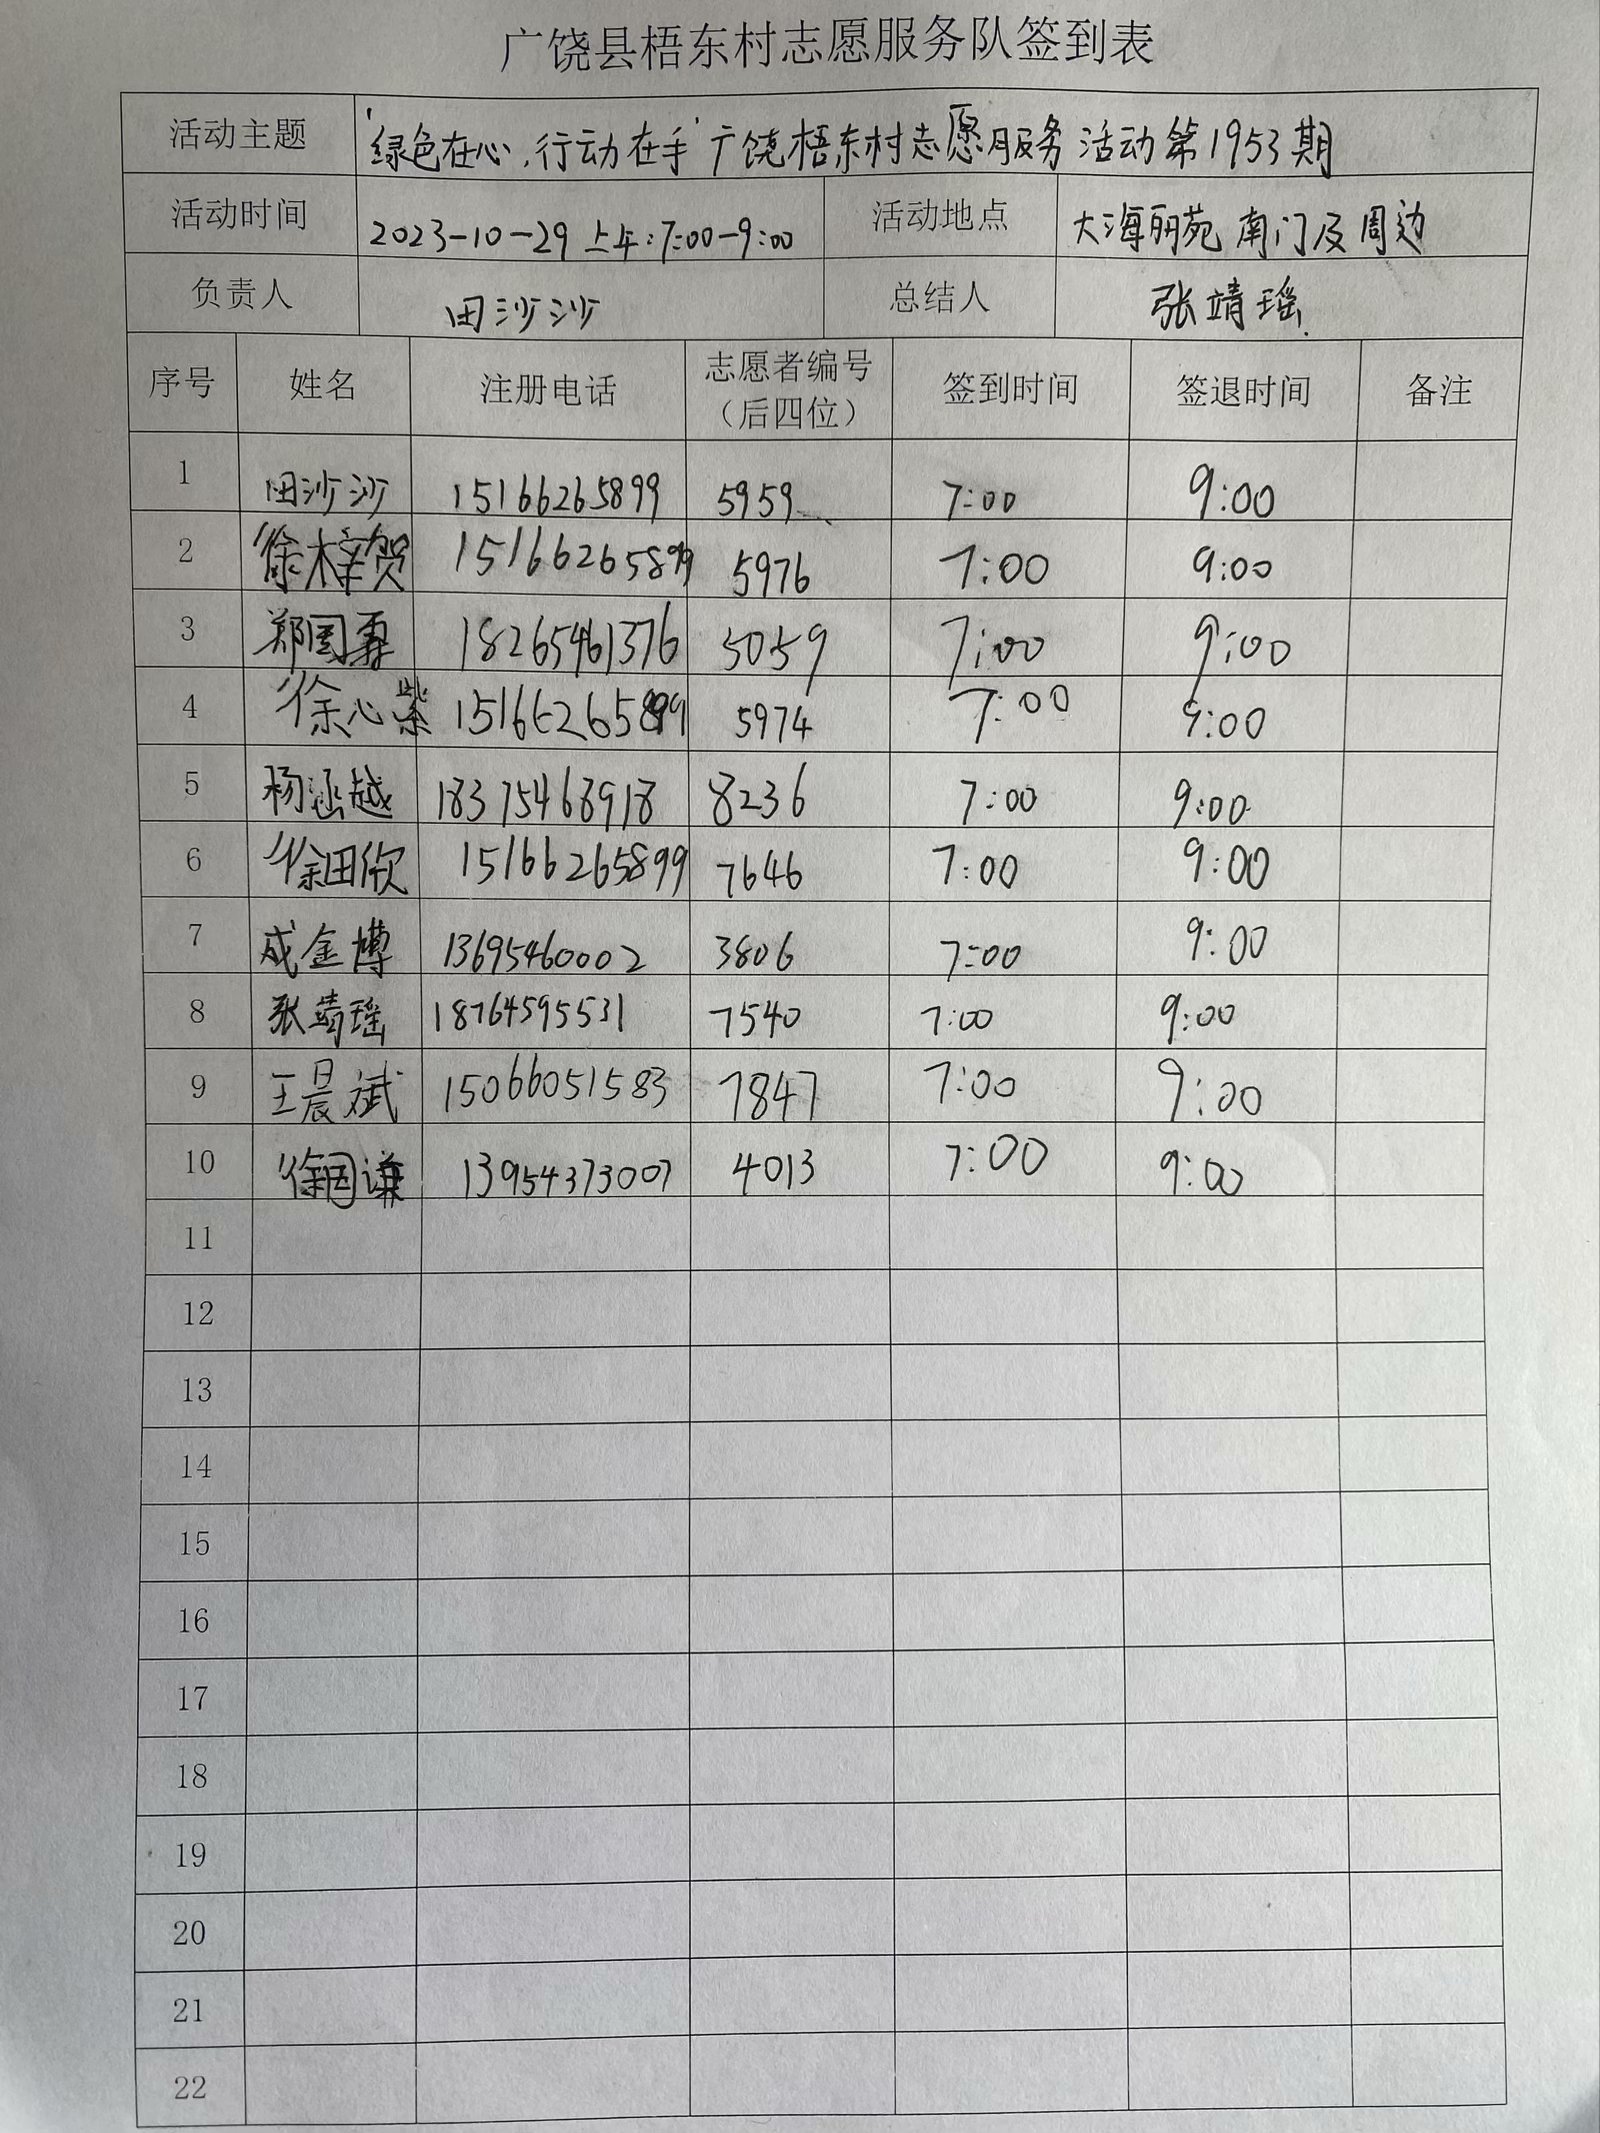 广饶县梧东村志愿服务队签到表
活动主题 “绿色在心,行动在手”广饶梧东村志愿服务活动第1953期
活动时间 2023-10-29 上午:7:00-9:00 活动地点 大海丽苑南门及周边
负责人 田沙沙 总结人 张靖瑶
序号 姓名 注册电话 志愿者编号(后四位) 签到时间 签退时间 备注
1 田沙沙 15166265899 5959 7:00 9:00
2 徐梓贺 15166265899 5976 7:00 9:00
3 郑国霖 18265461376 5059 7:00 9:00
4 徐心紫 15166265899 5974 7:00 9:00
5 杨涵越 18375468918 8236 7:00 9:00
6 徐田欣 15166265899 7646 7:00 9:00
7 成金博 13695460002 3806 7:00 9:00
8 张靖瑶 18764595531 7540 7:00 9:00
9 王晨斌 15066051583 7847 7:00 9:00
10 徐国谦 13954373007 4013 7:00 9:00
11
12
13
14
15
16
17
18
19
20
21
22